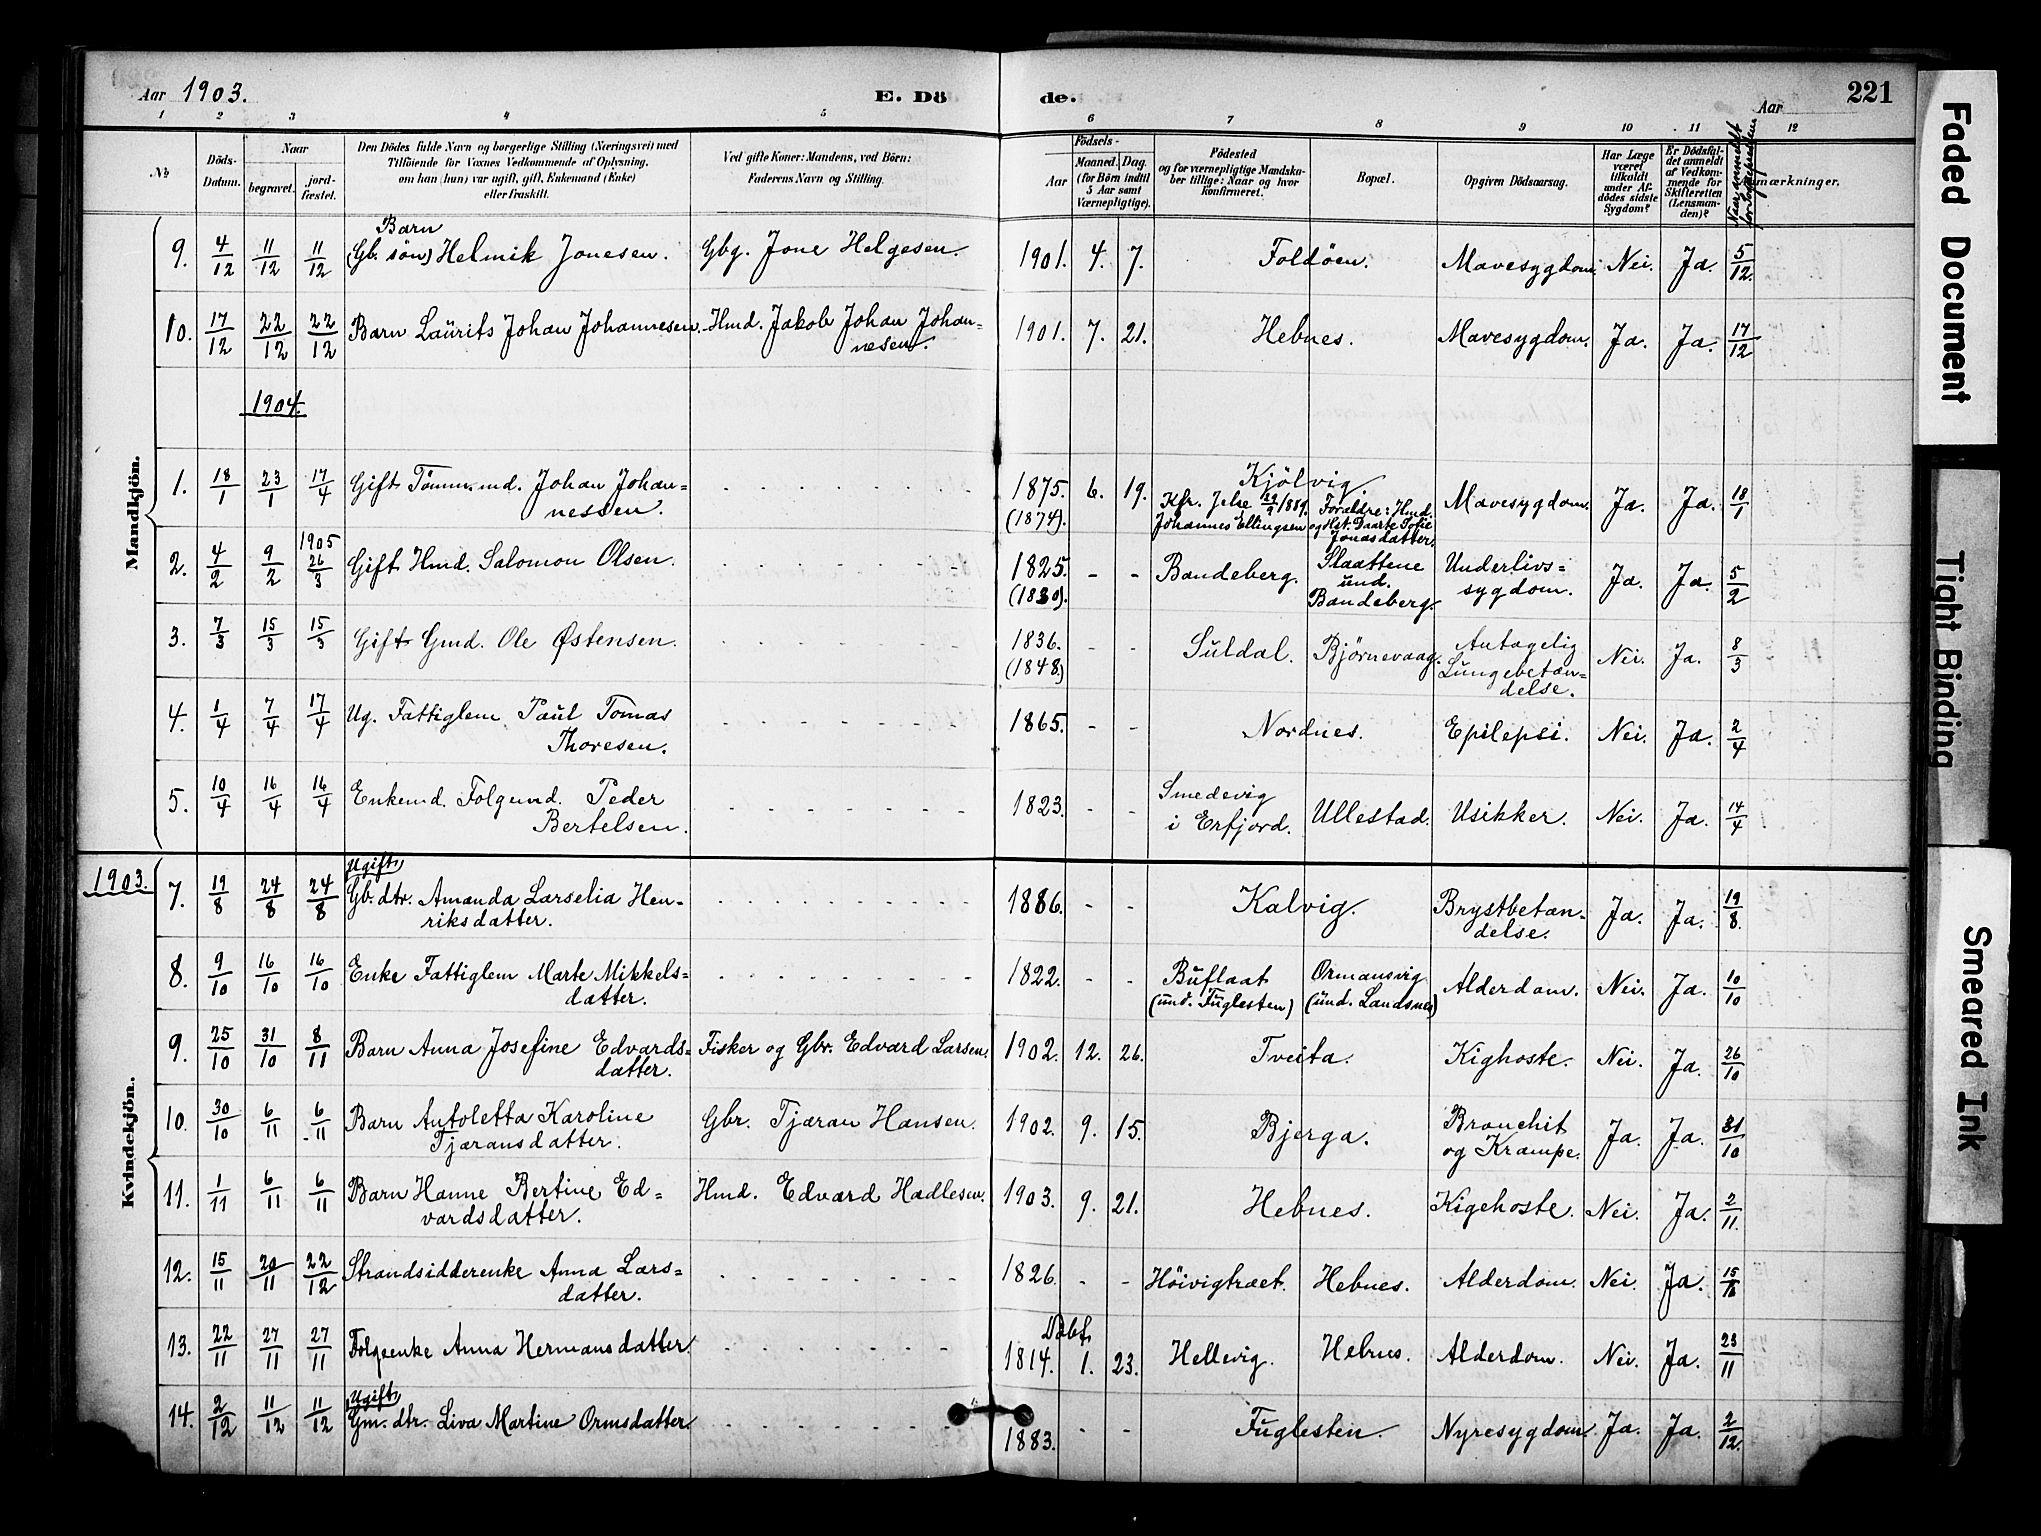 Aar 1903. E. Döde. Aar 221
1 2 3 4 5 6 7 8 9 10 11 12
No
Döds-Datum.
Naar
begravet.
jordfæstet.
Den Dödes fulde Navn og borgerlige Stilling (Næringsvei) med
Tilföiende for Voxnes Vedkommende af Oplysning,
om han (hun) var ugift, gift, Enkemand (Enke)
eller fraskilt.
Ved gifte Koner: Mandens, ved Börn:
Faderens Navn og Stilling.
Födsels-
Aar
Maaned. Dag.
(for Börn indtil
5 Aar samt
Værnepligtige).
Födested
og for værnepligtige Mandskaber tillige: Naar og hvor
konfirmeret.
Bopæl.
Opgiven Dödsaarsag.
Har Læge
været
tilkaldt
under Afdödes sidste
Sygdom?
Er Dödsfaldet anmeldt
af Vedkommende for
Skifteretten
(Lensmanden)?
mærkninger.
Mandkjön.
9. 4/12 11/12 11/12 Barn (Gb. søn) Helmik Jonesen. Gbg. Jone Helgesen. 1901. 4. 7. Foldøen. Mavesygdom. Nei. Ja. 5/12.
10. 17/12 22/12 22/12 Barn Laurits Johan Johannesen. Hmd. Jakob Johan Johannesen. 1901. 7. 21. Hebnes. Mavesygdom. Ja. Ja. 17/12
1904.
1. 18/1 23/1 17/4 Gift Tømm.md. Johan Johannessen. 1875. (1874). 6. 19. Kjölvig. Kfr. Jelse 29/9 1889. Forældre: Hmd. Johannes Ellingsen og Hst. Daarte Sofie Jonasdatter. Mavesygdom. Ja. Ja. 18/1
2. 4/2 9/2 1905 26/3 Gift Hmd. Salomon Olsen. 1825. (1830). - - Bandeberg. Slaattene und. Bandeberg. Underlivssygdom. Ja. Ja. 5/2
3. 7/3 15/3 15/3 Gift Gmd. Ole Østensen. 1836. (1848.) - - Suldal. Bjørnevaag. Antagelig Lungebetændelse. Nei. Ja. 8/3
4. 1/4 7/4 17/4 Ug. Fattiglem Paul Tomas Thoresen. 1865. - - Nordnes. Epilepsi. Nei. Ja. 2/4
5. 10/4 16/4 16/4 Enkemd. Folgemd. Peder Bertelsen. 1823. - - Smedevig i Erfjord. Ullestad. Usikker. Nei. Ja. 14/4
1903.
Kvindekjön.
7. 19/8 24/8 24/8 Ugift Gb. dtr. Amanda Larselia Henriksdatter. 1886. - - Kalvig. Brystbetændelse. Ja. Ja. 19/8.
8. 9/10 16/10 16/10 Enke Fattiglem Marte Mikkelsdatter. 1822. - - Buflaat (und. Fuglesten) Ormansvig (und. Landsnes) Alderdom. Nei. Ja. 10/10
9. 25/10 31/10 8/11 Barn Anna Josefine Edvardsdatter. Fisker og Gbr. Edvard Larsen. 1902. 12. 26. Tveita. Kighoste. Nei. Ja. 26/10
10. 30/10 6/11 6/11 Barn Antoletta Karoline Tjæransdatter. Gbr. Tjæran Hansen. 1902. 9. 15. Bjerga. Bronchit og Krampe. Ja. Ja. 31/10
11. 1/11 6/11 6/11 Barn Hanne Bertine Edvardsdatter. Hmd. Edvard Hadlesen. 1903. 9. 21. Hebnes. Kigehoste. Nei. Ja. 2/11.
12. 15/11 20/11 22/12 Strandsidderenke Anna Larsdatter. 1826. - - Höivigtræet. Hebnes. Alderdom. Nei. Ja.
13. 22/11 27/11 27/11 Folgeenke Anna Hermansdatter. 1814. Døbt 1. 23. Hellevig. Hebnes. Alderdom. Nei. Ja. 23/11
14. 2/12 11/12 11/12 Ugift Gm. dtr. Liva Martine Ormsdatter. 1883. - - Fuglesten. Nyresygdom. Ja. Ja. 2/12.
Faded Document
Tight Binding
Smeared Ink